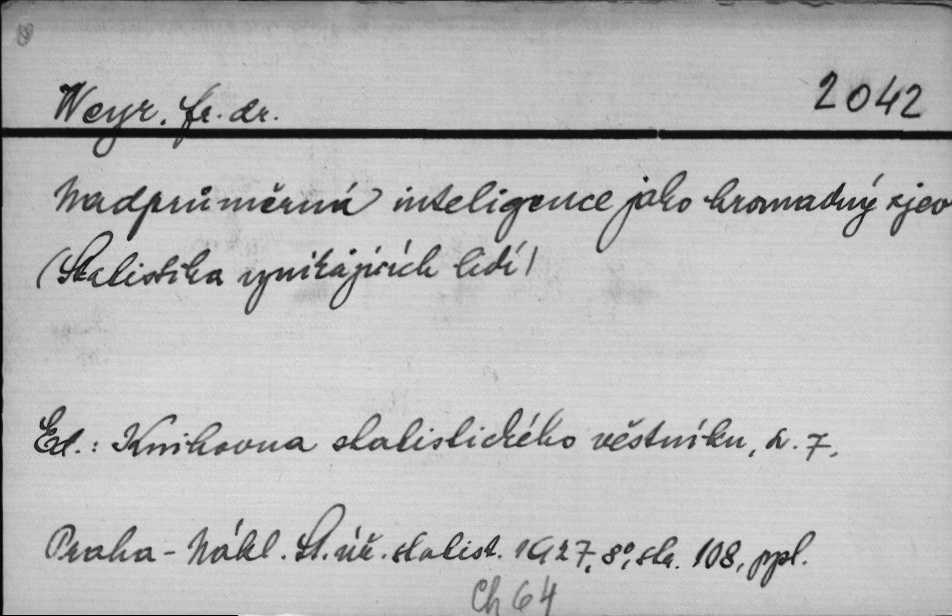 Weyr, fr. dr. 2042
Nadprůměrná inteligence jako hromadný zjev
(Statistika vynikajících lidí)
Ed.: Knihovna statistického věstníku, sv. 7.
Praha - Nákl. St. úř. statist. 1927, 8°, str. 108, ppl.
Ch 64